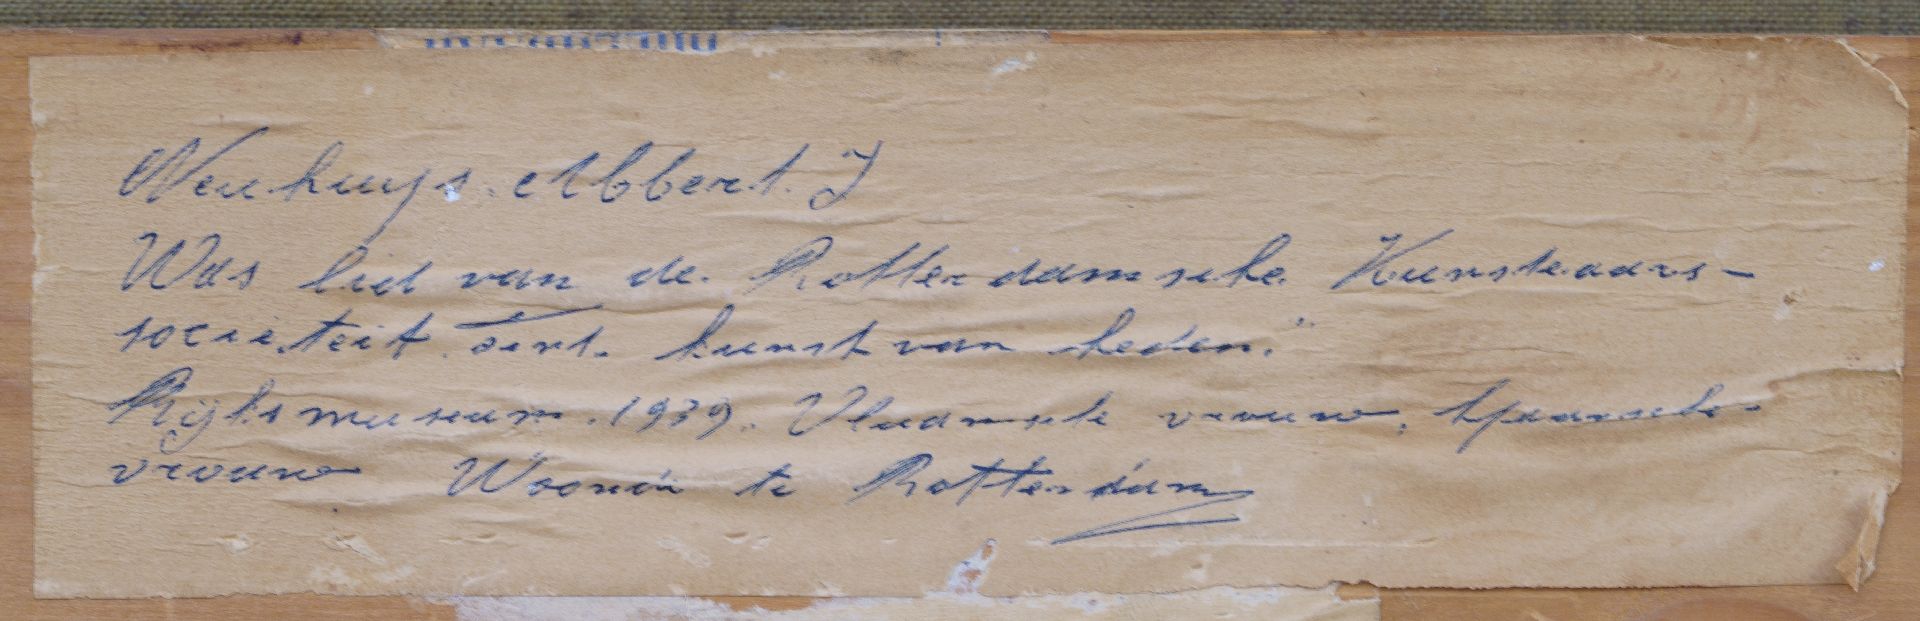 Neuhuys. Albert. J
Was lid van de. Rotterdamsche. Kunstenaars-
societeit. Tent. kunst van heden."
Rijksmuseum. 1939. Vlaamsche vrouw. Spaansche.
vrouw Woonde te Rotterdam